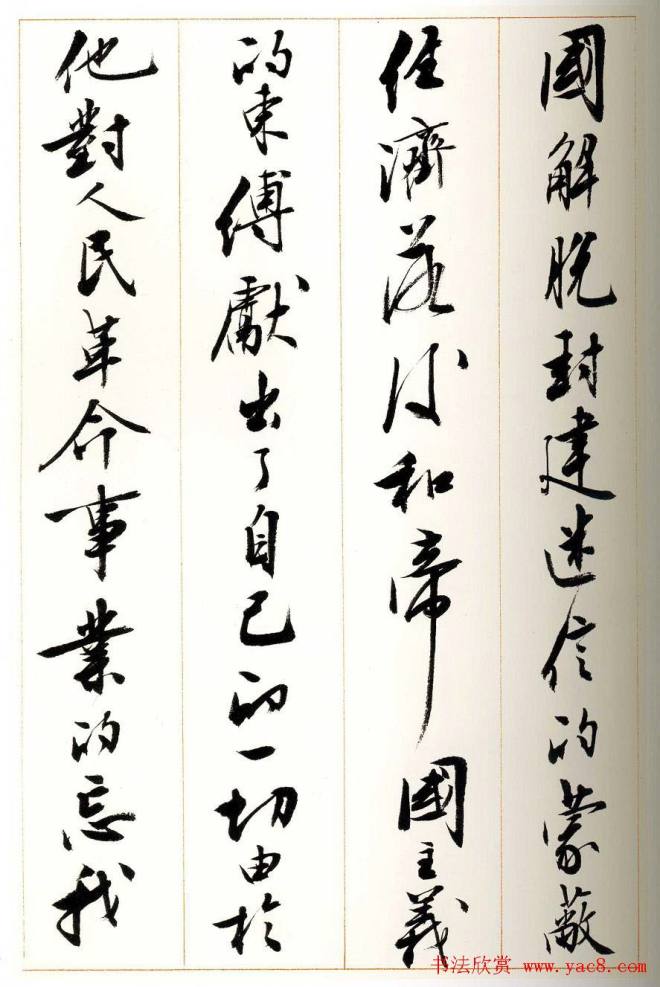 國解脫封建迷信的蒙蔽
經濟落後和帝國主義
的束縛獻出了自己的一切由於
他對人民革命事業的忘我
书法欣赏 www.yac8.com